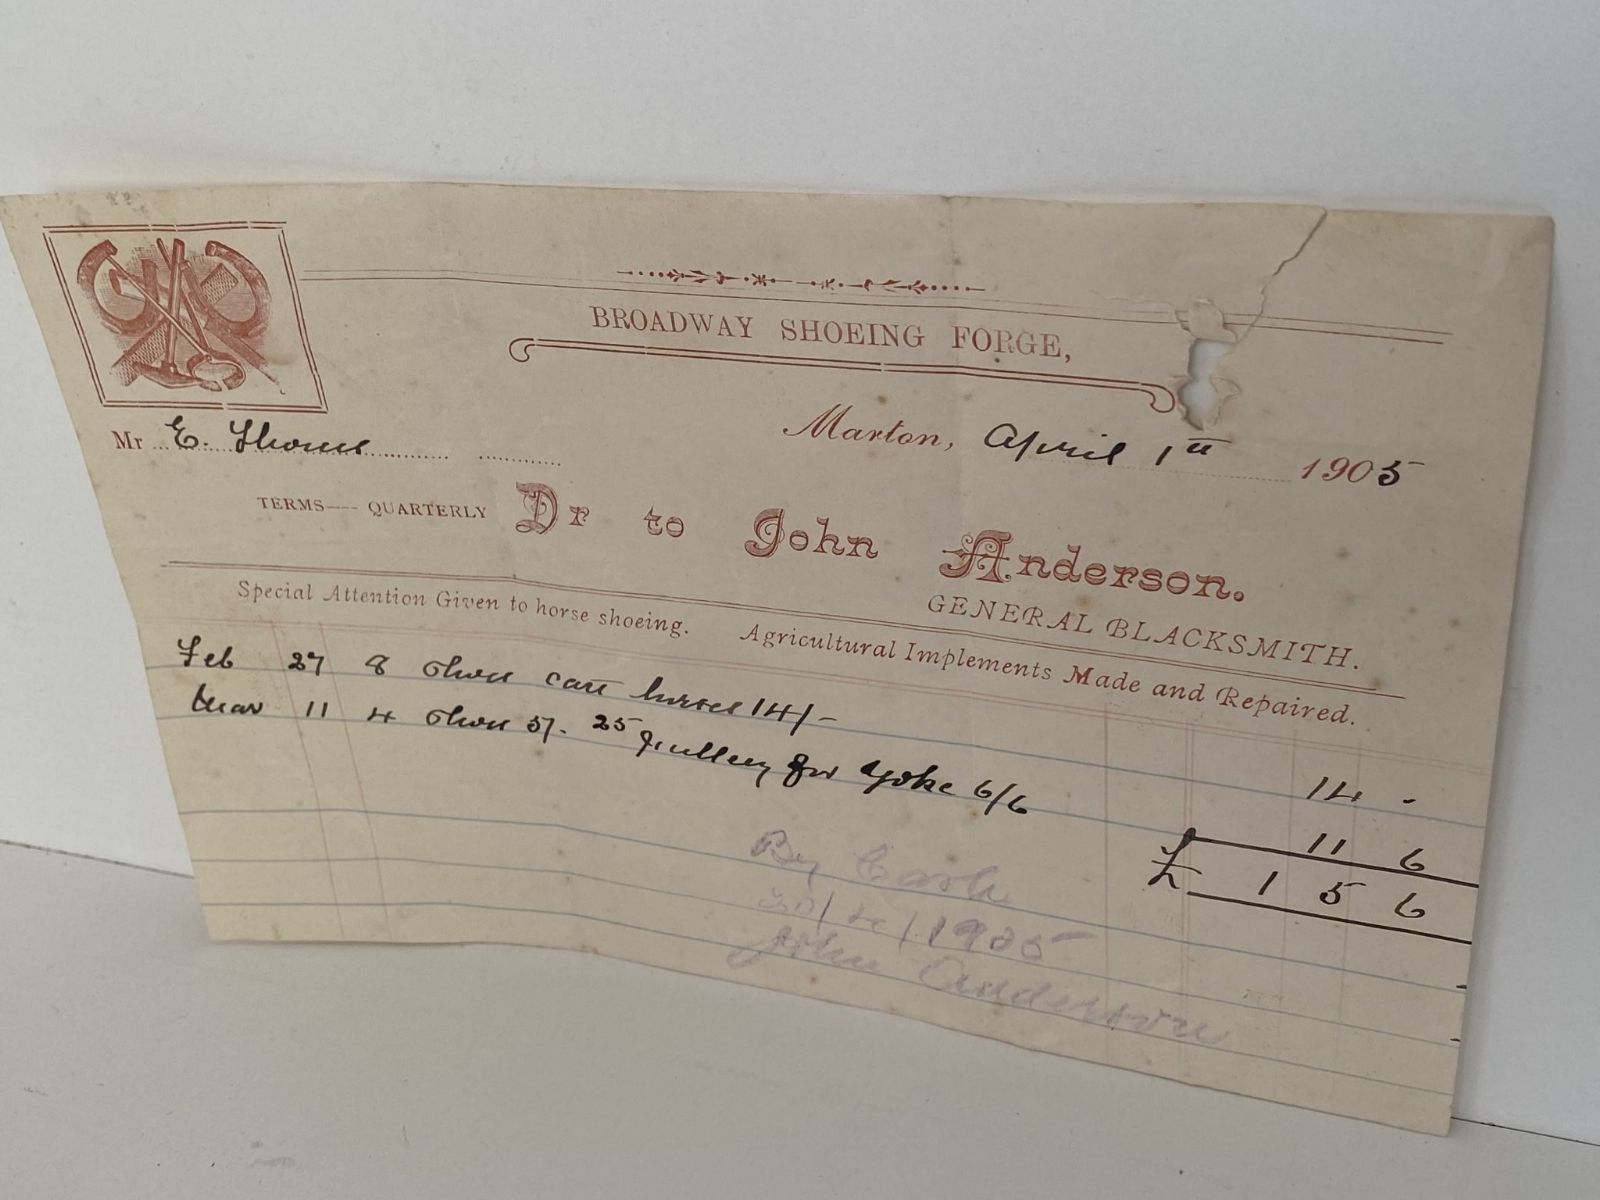 BROADWAY SHOEING FORGE,
Marton, April 1st 1905
Mr E. Thoms
TERMS — QUARTERLY Dr to John Anderson.
GENERAL BLACKSMITH.
Special Attention Given to horse shoeing. Agricultural Implements Made and Repaired.
Feb 27 8 shoes cart horses 14/- 14 -
Mar 11 4 shoes 5/. 25 pulley for Yoke 6/6 11 6
£ 1 5 6
By Cash
20/4/1905
John Anderson